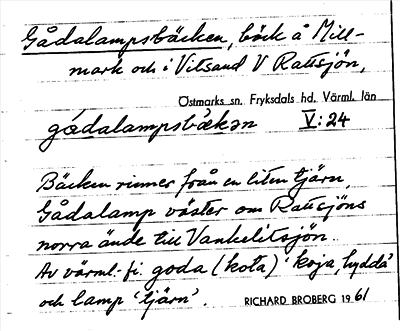 Gådalampsbäcken, bäck å Mill-
mark och i Vitsand V Rattsjön,
Östmarks sn. Fryksdals hd. Värml. län
gådalampsbäkən V:24
Bäcken rinner från en liten tjärn,
Gådalamp väster om Rattsjöns
norra ände till Vankelitsjön.
Av värml.-fi. goda (kota) 'koja, hydda'
och lamp 'tjärn'.
RICHARD BROBERG 1961